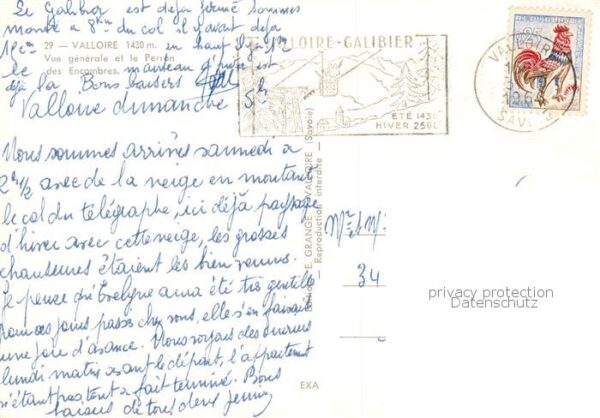 Le Galibier est déjà fermé sommes
monté à 8km du col il y avait déjà
en haut
29 - VALLOIRE 1430 m.
Vue générale et le Perron
des Encombres.
le manteau
déjà là Bons baisers
Valloire dimanche 5h
VALLOIRE-GALIBIER
ÉTÉ 1430
HIVER 2500
VALLOIRE
SAVOIE
Nous sommes arrivés samedi à
2h1/2 avec de la neige en montant
le col du télégraphe, ici déjà paysage
d'hiver avec cette neige, les grosses
chaussures étaient les bien venues.
Je pense qu'Evelyne aura été très gentille
pour ces jours passés chez vous, elle s'en faisait
une joie d'avance. Nous voyons des
lundi matin avant le départ, l'appartement
n'étant pas tout à fait terminé. Bons
baisers de tous deux
Editions E. GRANGE - VALLOIRE (Savoie)
Reproduction interdite
Mr et M
34
privacy protection
Datenschutz
EXA